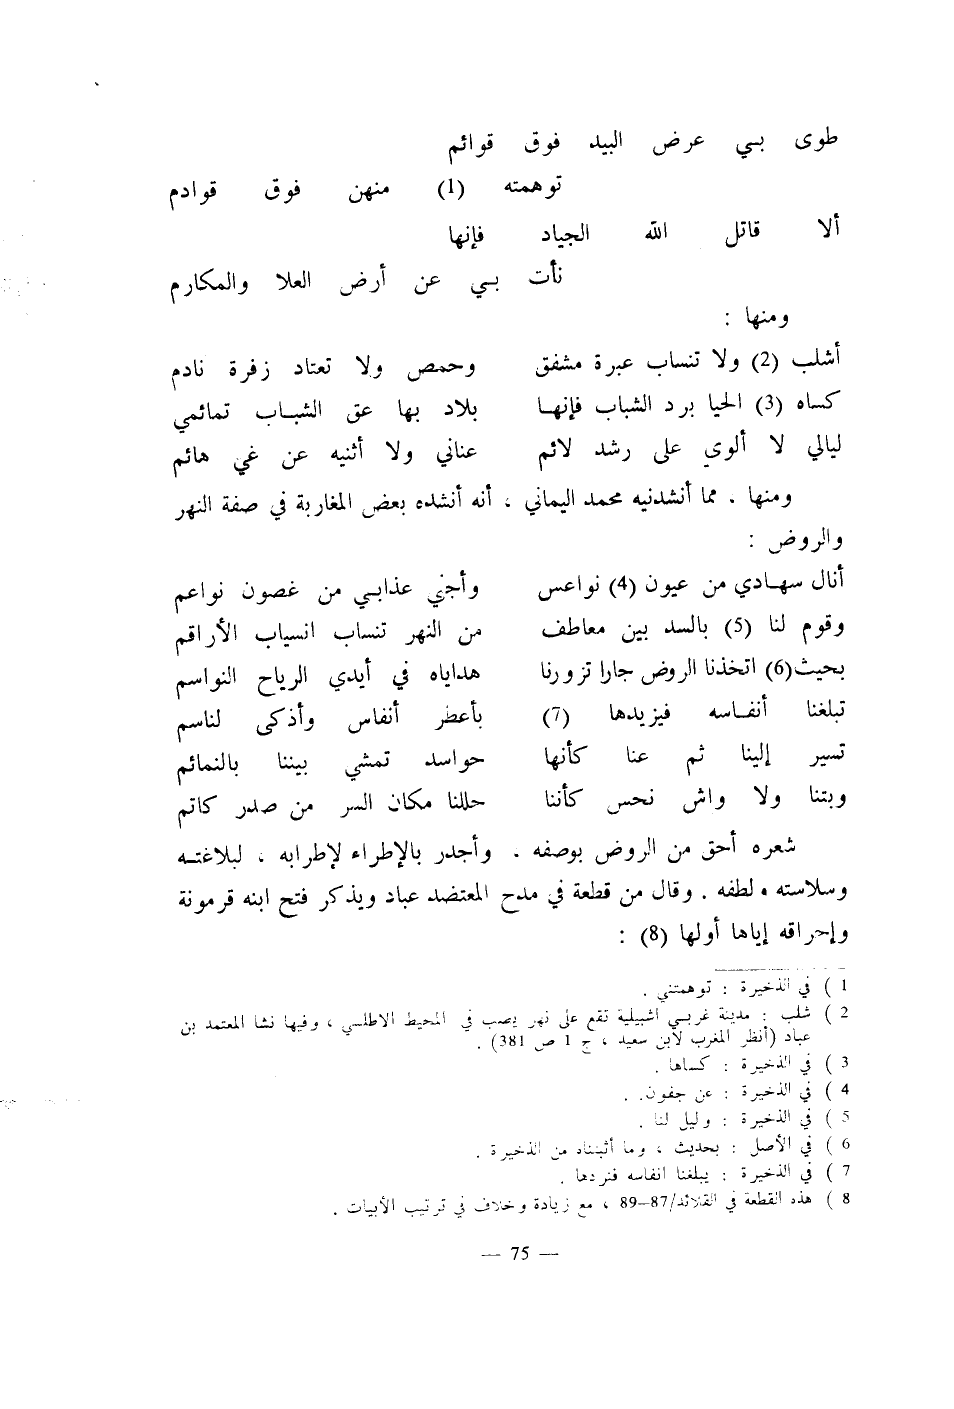 طوى بـي عرض البيد فوق قوائم
توهمته (1) منهن فوق قوادم
ألا قاتل الله الجياد فإنها
نأت بـي عن أرض العلا والمكارم
ومنها :
أشلب (2) ولا تنساب عبرة مشفق وحمص ولا تعتاد زفرة نادم
كساه (3) الحيا برد الشباب فإنهـا بلاد بها عق الشبـاب تمائمي
ليالي لا ألوي على رشد لائم عناني ولا أثنيه عن غي هائم
ومنها . مما أنشدنيه محمد اليماني ، أنه أنشده بعض المغاربة في صفة النهر
والروض :
أنال سهـادي من عيون (4) نواعس وأجني عذابـي من غصون نواعم
وقوم لنا (5) بالسد بين معاطف من النهر تنساب انسياب الأراقم
بحيث(6) اتخذنا الروض جارا تزورنا هداياه في أيدي الرياح النواسم
تبلغنا أنفـاسه فيزيدها (7) بأعطر أنفاس وأذكى لناسم
تسير إلينا ثم عنا كأنها حواسد تمشي بيننا بالنمائم
وبتنا ولا واش نحس كأننا حللنا مكان السر من صدر كاتم
شعره أحق من الروض بوصفه . وأجدر بالإطراء لإطرابه ، لبلاغتـه
وسلاسته ولطفه . وقال من قطعة في مدح المعتضد عباد ويذكر فتح ابنه قرمونة
وإحراقه إياها أولها (8) :
1 ) في الذخيرة : توهمتني .
2 ) شلب : مدينة غربـي اشبيلية تقع على نهر يصب في المحيط الاطلسي ، وفيها نشا المعتمد بن
عباد (أنظر المغرب لابن سعيد ، ج 1 ص 381) .
3 ) في الذخيرة : كساها .
4 ) في الذخيرة : عن جفون. .
5 ) في الذخيرة : وليل لنا .
6 ) في الأصل : بحديث ، وما أثبتناه من الذخيرة .
7 ) في الذخيرة : يبلغنا انفاسه فنردها .
8 ) هذه القطعة في القلائد/87—89 ، مع زيادة وخلاف في ترتيب الأبيات .
— 75 —